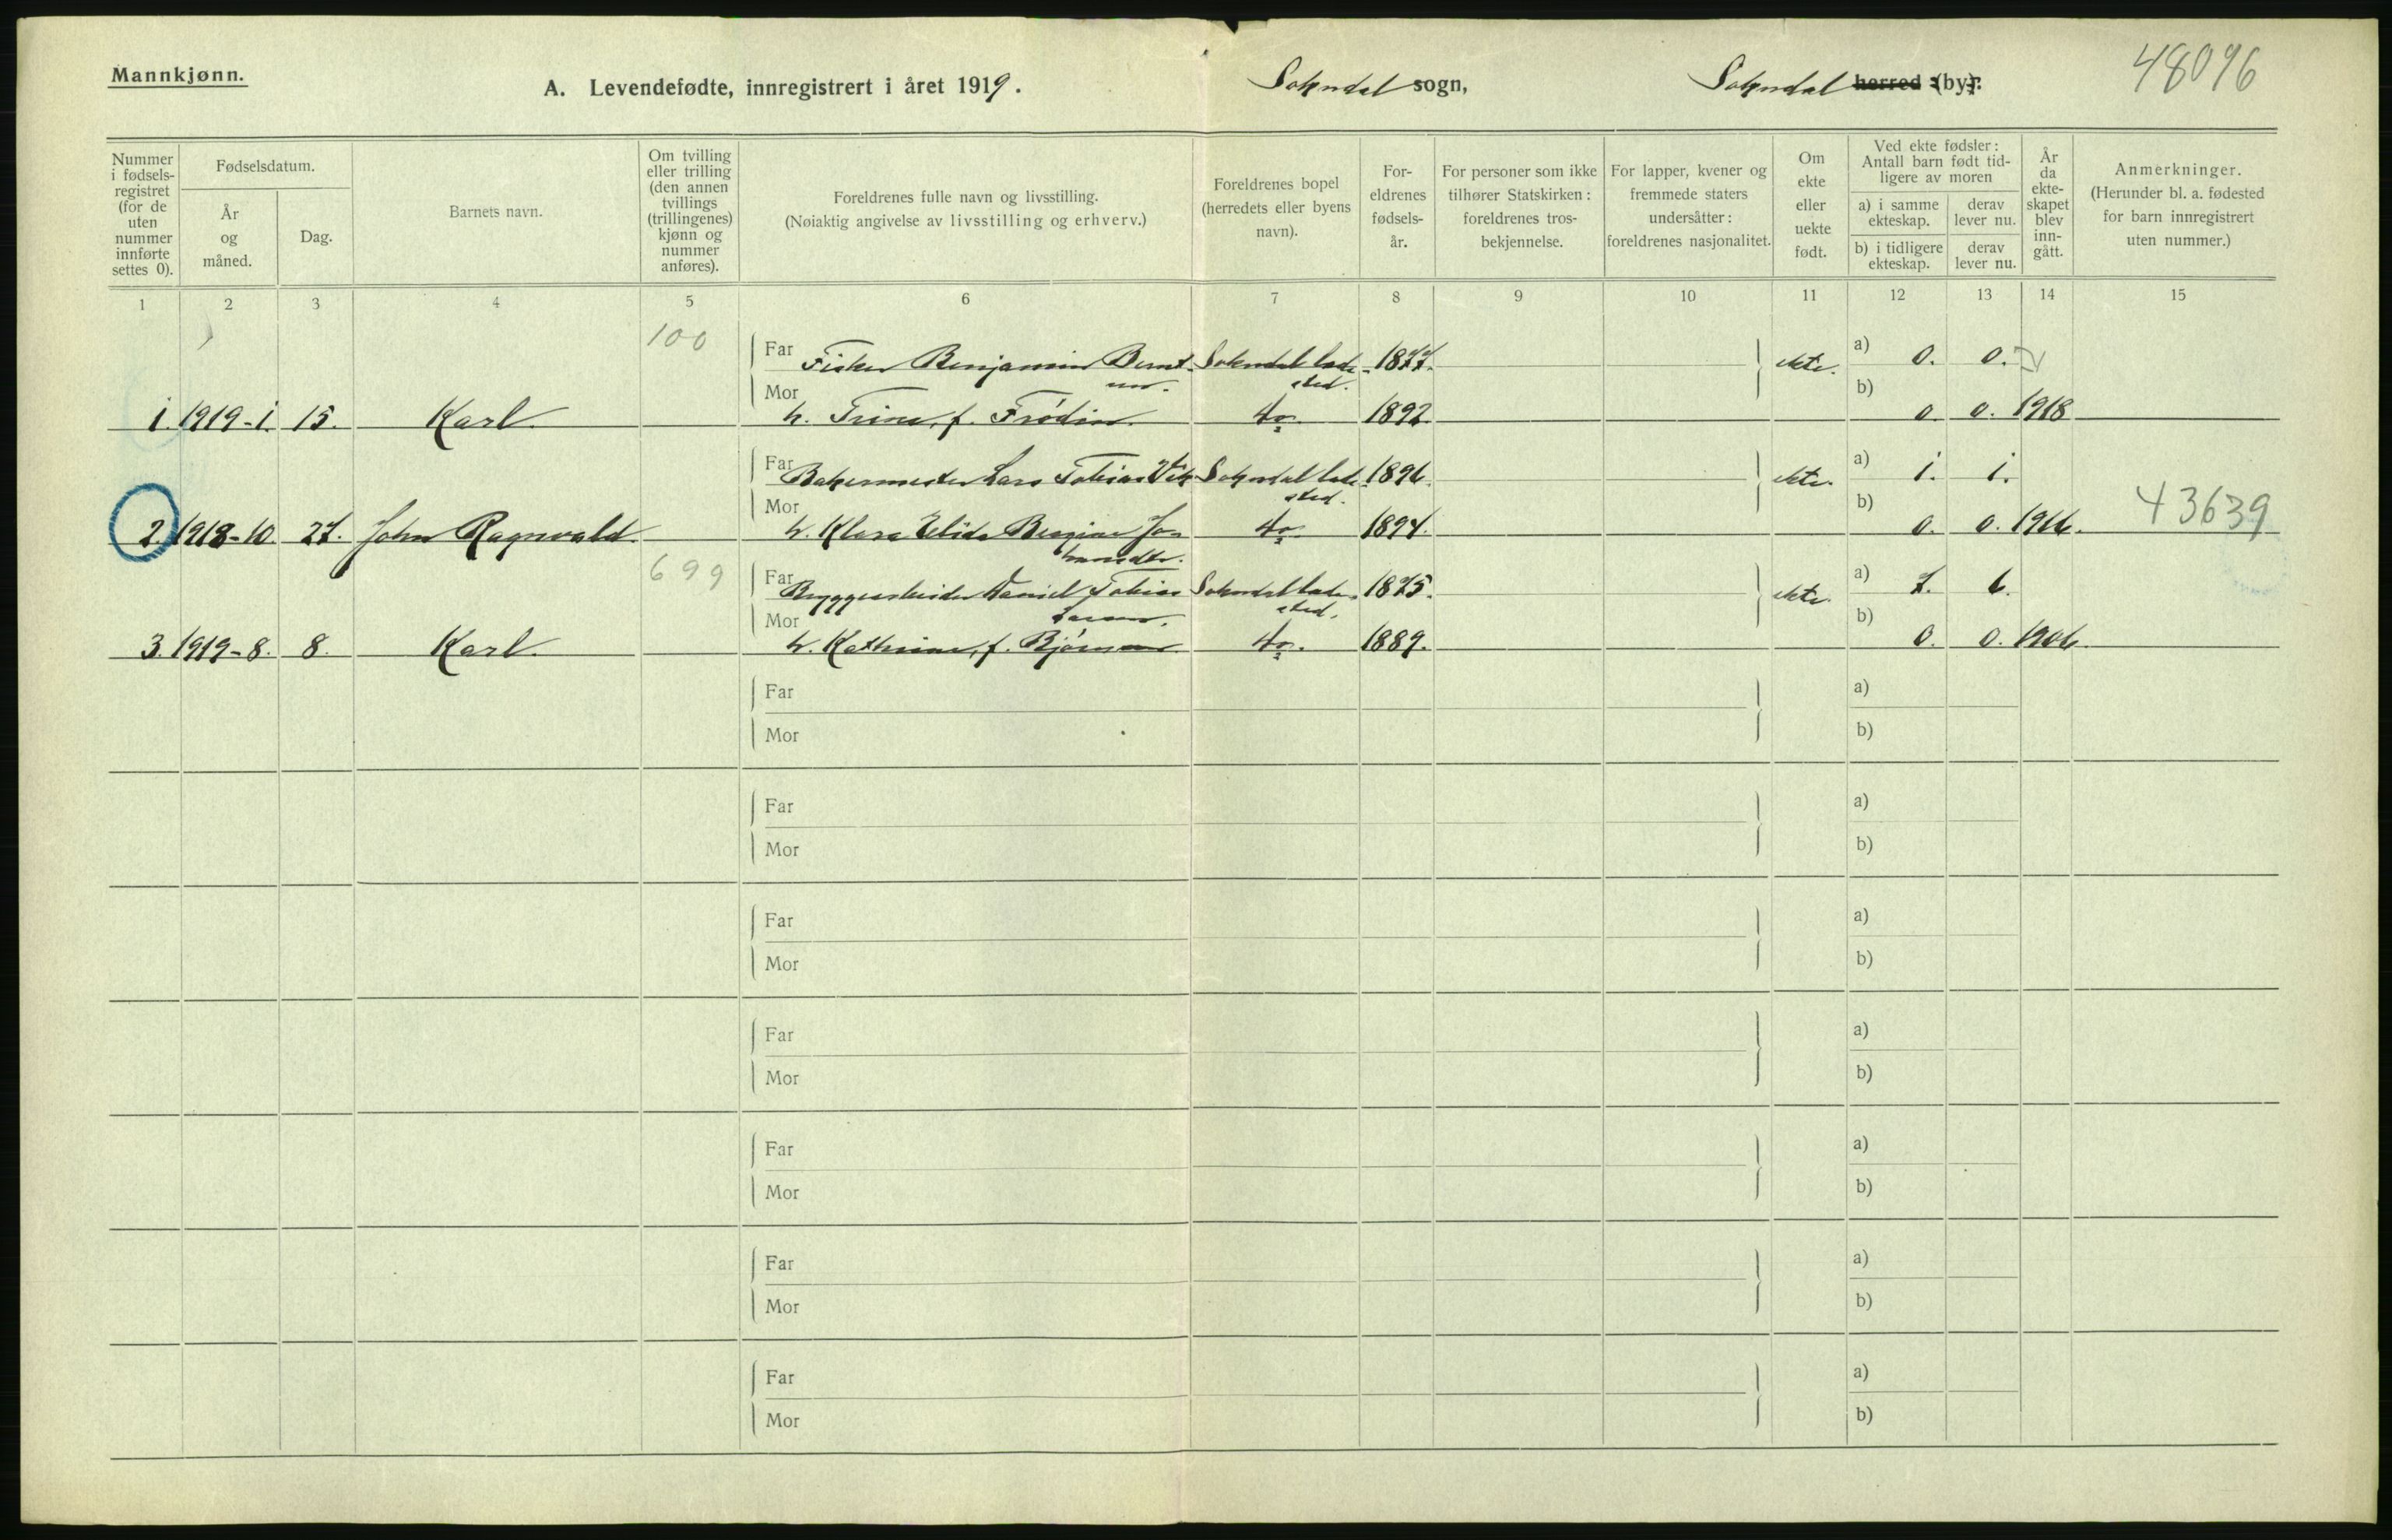 Mannkjønn.
A. Levendefødte, innregistrert i året 1919. Sokndal sogn, Sokndal herred (by). 48096
Nummer i fødsels-registret (for de uten nummer innførte settes 0).
Fødselsdatum.
År og måned.
Dag.
Barnets navn.
Om tvilling eller trilling (den annen tvillings (trillingenes) kjønn og nummer anføres).
Foreldrenes fulle navn og livsstilling.
(Nøiaktig angivelse av livsstilling og erhverv.)
Foreldrenes bopel (herredets eller byens navn).
For-eldrenes fødsels-år.
For personer som ikke tilhører Statskirken: foreldrenes tros-bekjennelse.
For lapper, kvener og fremmede staters undersåtter: foreldrenes nasjonalitet.
Om ekte eller uekte født.
Ved ekte fødsler: Antall barn født tid-ligere av moren
a) i samme ekteskap.
derav lever nu.
b) i tidligere ekteskap.
derav lever nu.
År da ekte-skapet blev inn-gått.
Anmerkninger.
(Herunder bl. a. fødested for barn innregistrert uten nummer.)
1 2 3 4 5 6 7 8 9 10 11 12 13 14 15
100
Far Fisker Benjamin Bernt- Sokndal lade- 1877. ekte. a) 0. 0.
sen. sted.
Mor b)
1. 1919-1. 15. Karl h. Trine, f. Frødin. do. 1892. 0. 0. 1918
Far Bakermester Lars Tobias Vik Sokndal lade- 1896. ekte. a) 1. 1.
sted.
Mor b)
2. 1918-10. 27. John Ragnvald h. Klara Elida Bergine Jo- do. 1894. 0. 0. 1916. 43639
hansdtr.
699
Far Bryggearbeider Daniel Tobias Sokndal lade- 1875. ekte. a) 7. 6.
sted.
Mor b)
3. 1919-8. 8. Karl h. Kathrine, f. do. 1889. 0. 0. 1906.
Far a)
Mor b)
Far a)
Mor b)
Far a)
Mor b)
Far a)
Mor b)
Far a)
Mor b)
Far a)
Mor b)
Far a)
Mor b)